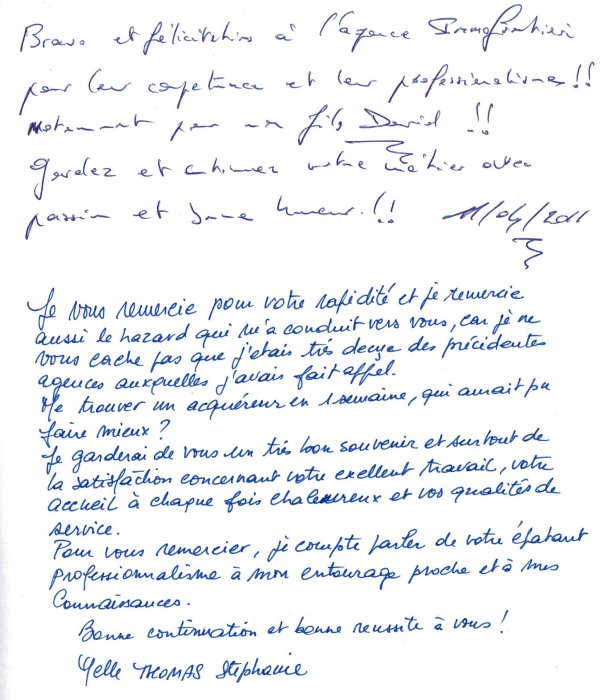 Bravo et félicitations à l'agence Immofrontière
pour leur compétence et leur professionalisme!!
notamment pour mon fils David !!
Gardez et animez votre métier avec
passion et bonne humeur.!! 11/04/2011
Je vous remercie pour votre rapidité et je remercie
aussi le hazard qui m'a conduit vers vous, car je ne
vous cache pas que j'etais très deçue des précidentes
agences auxquelles j'avais fait appel.
Me trouver un acquéreur en 1 semaine, qui aurait pu
faire mieux ?
Je garderai de vous un très bon souvenir et surtout de
la satisfaction concernant votre exellent travail, votre
accueil à chaque fois chaleureux et vos qualités de
service.
Pour vous remercier, je compte parler de votre épatant
professionnalisme à mon entourage proche et à mes
Connaissances.
Bonne continuation et bonne reussite à vous !
Melle THOMAS Stéphanie